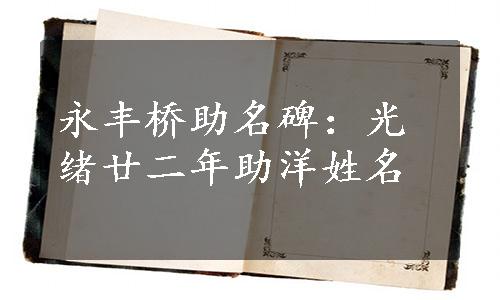 永丰桥助名碑：光
绪廿二年助洋姓名